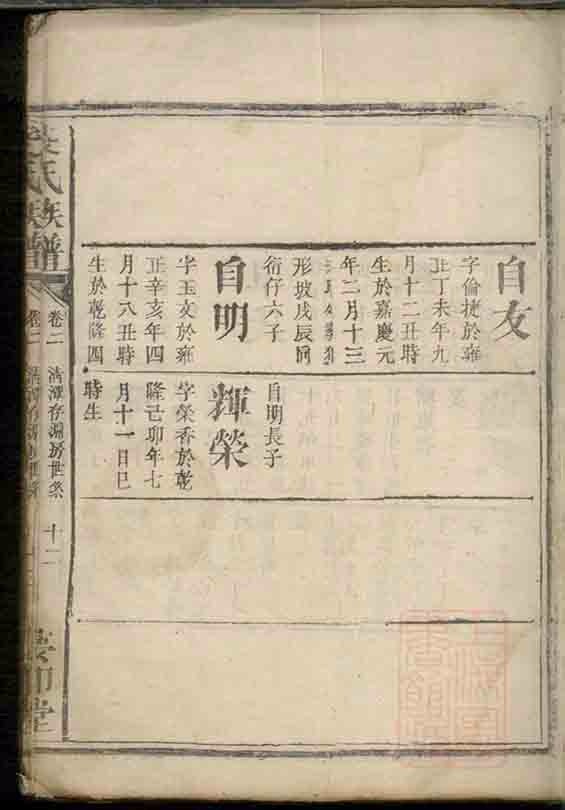 自友
字倫捷於雍
正丁未年九
月十二丑時
生於嘉慶元
年二月十三
形坡戊辰向
衍仔六子
自明
字玉文於雍
正辛亥年四
月十八丑時
生於乾隆四
自明長子
輝榮
字榮香於乾
隆己卯年七
月十一日巳
時生
氏族譜
卷二
房世系
十二
堂